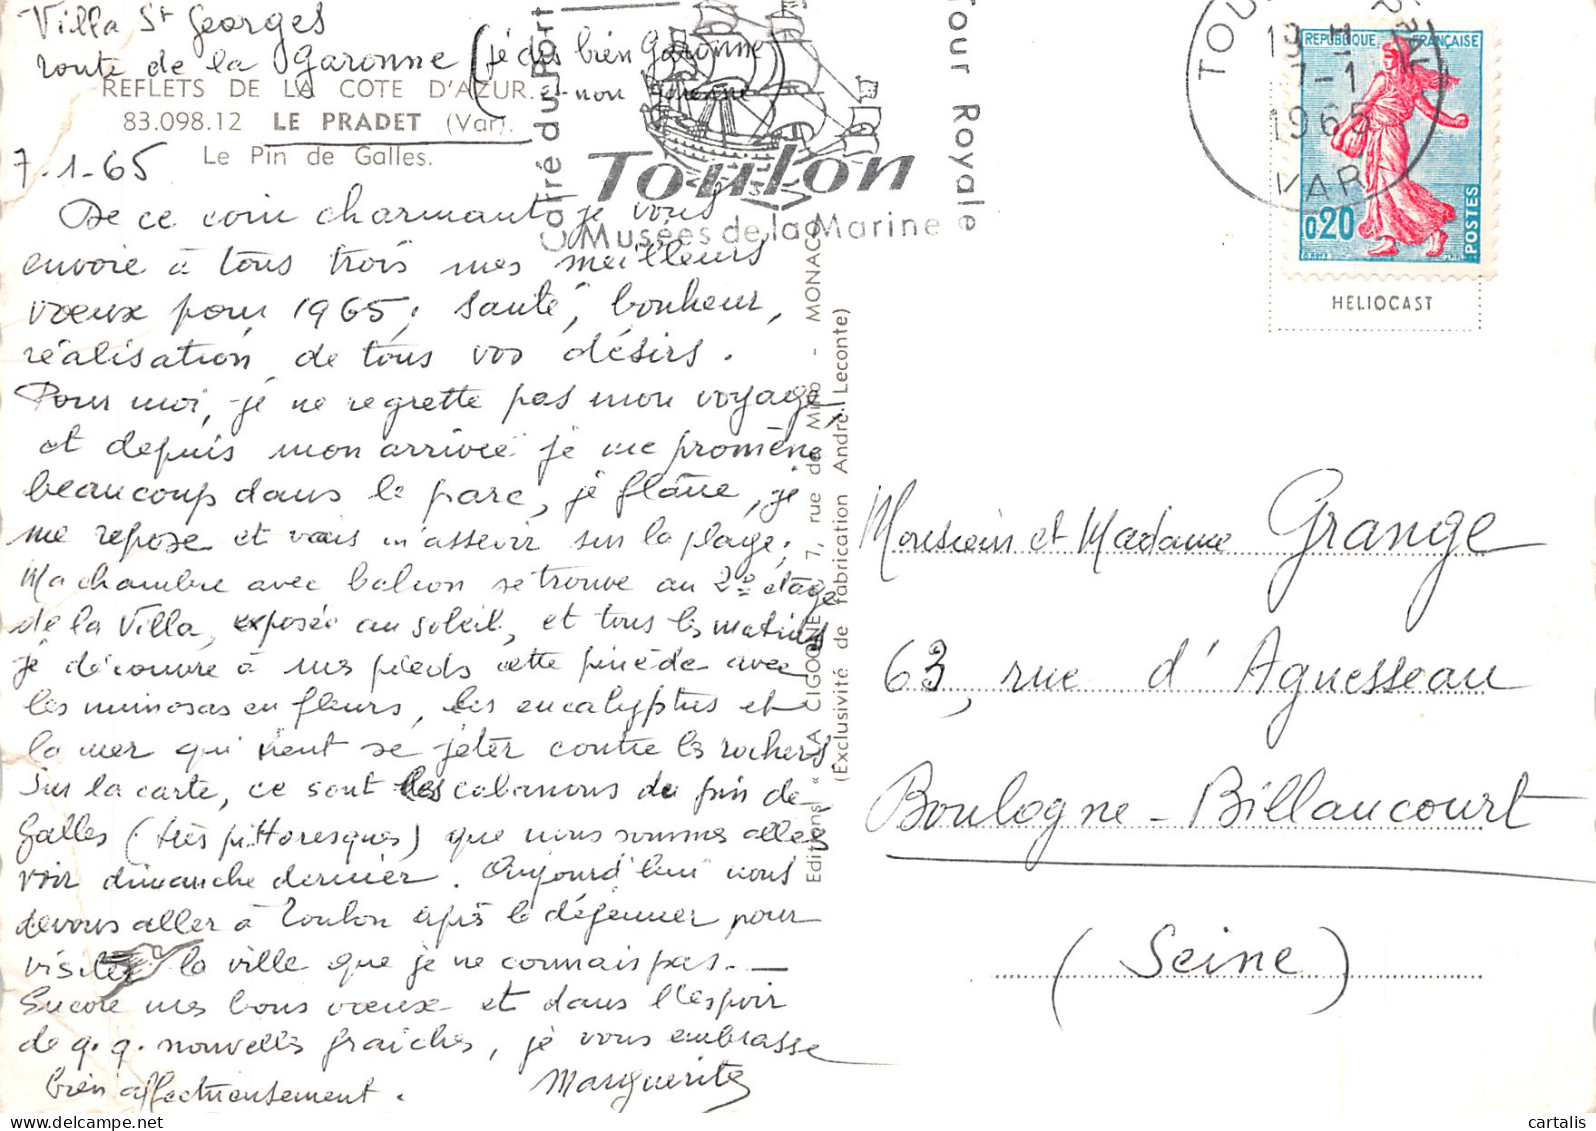 Villa St Georges
route de la Garonne (je dis bien Garonne
non
REFLETS DE LA COTE D'AZUR.
83.098.12 LE PRADET (Var).
Le Pin de Galles.
7-1-65
De ce coin charmant, je vous
envoie à tous trois mes meilleurs
voeux pour 1965; santé, bonheur,
réalisation de tous vos désirs.
Pour moi, je ne regrette pas mon voyage,
et depuis mon arrivée je me promène
beaucoup dans le parc, je flâne, je
me repose et vais m'asseoir sur la plage;
Ma chambre avec balcon se trouve au 2e étage
de la Villa, exposée au soleil, et tous les matins
je découvre à mes pieds cette pinède avec
les mimosas en fleurs, les eucalyptus et
la mer qui vient se jeter contre les rochers
Sur la carte, ce sont les cabanons du pin de
Galles (très pittoresques) que nous sommes allés
voir dimanche dernier. Aujourd'hui nous
devons aller à Toulon après le déjeuner pour
visiter la ville que je ne connais pas. —
Encore mes bons voeux et dans l'espoir
de q.q. nouvelles fraîches, je vous embrasse
bien affectueusement. Marguerite
Carré du Port
Toulon
Musées de la Marine
Tour Royale
Editions « LA CIGOGNE » 7, rue de Millo - MONACO
(Exclusivité de fabrication André Leconte)
TOU
19 H
7-1
1965
VAR
REPUBLIQUE FRANÇAISE
0,20
POSTES
HELIOCAST
Monsieur et Madame Grange
63, rue d'Aguesseau
Boulogne-Billancourt
(Seine)
cartalis